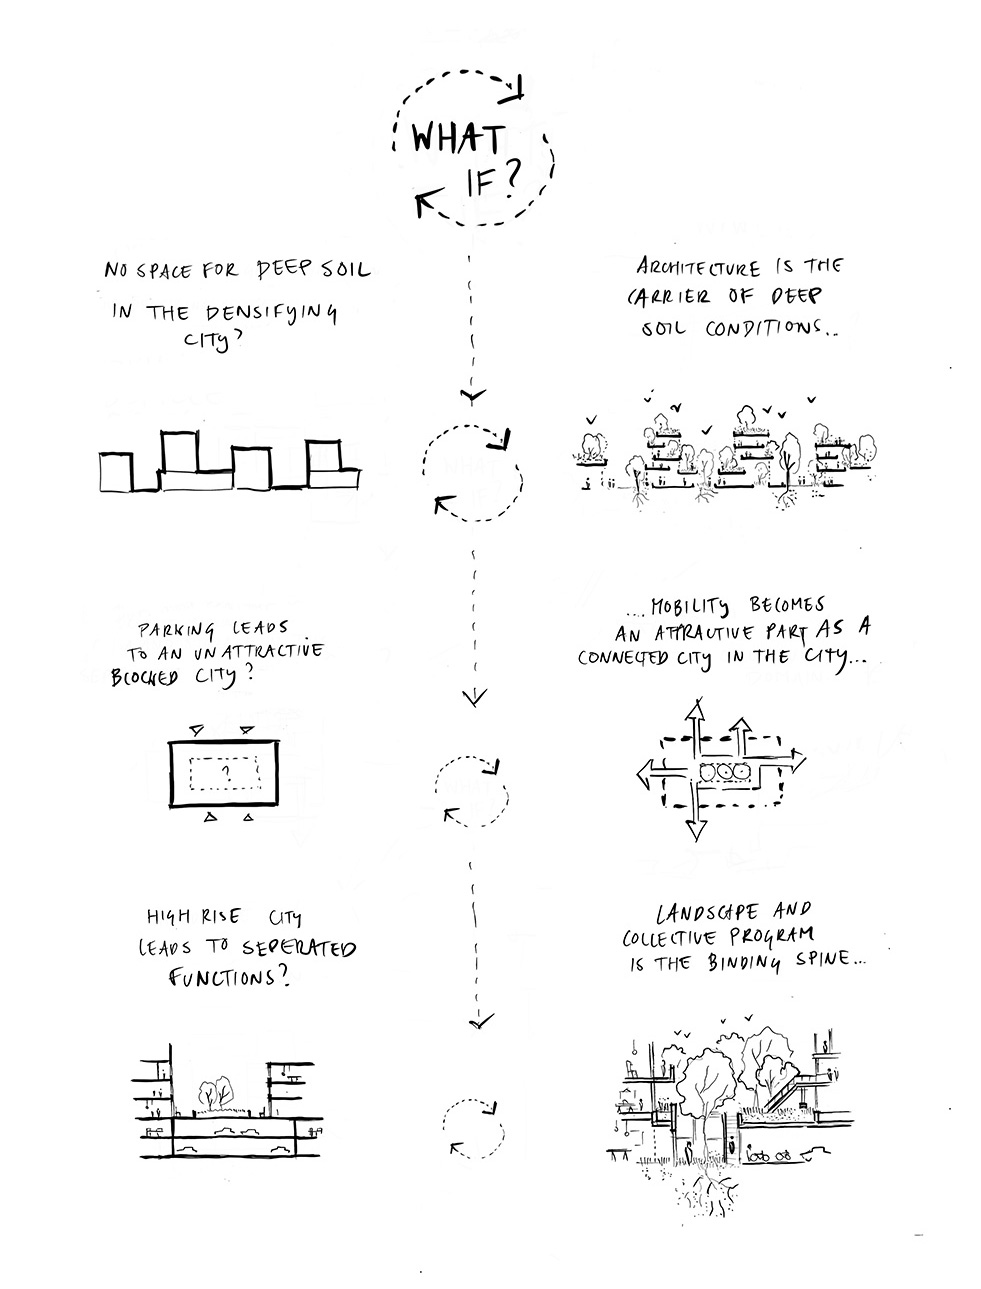 WHAT
IF?
NO SPACE FOR DEEP SOIL
IN THE DENSIFYING
CITY?
ARCHITECTURE IS THE
CARRIER OF DEEP
SOIL CONDITIONS..
PARKING LEADS
TO AN UNATTRACTIVE
BLOCKED CITY?
...MOBILITY BECOMES
AN ATTRACTIVE PART AS A
CONNECTED CITY IN THE CITY...
?
HIGH RISE CITY
LEADS TO SEPERATED
FUNCTIONS?
LANDSCAPE AND
COLLECTIVE PROGRAM
IS THE BINDING SPINE...